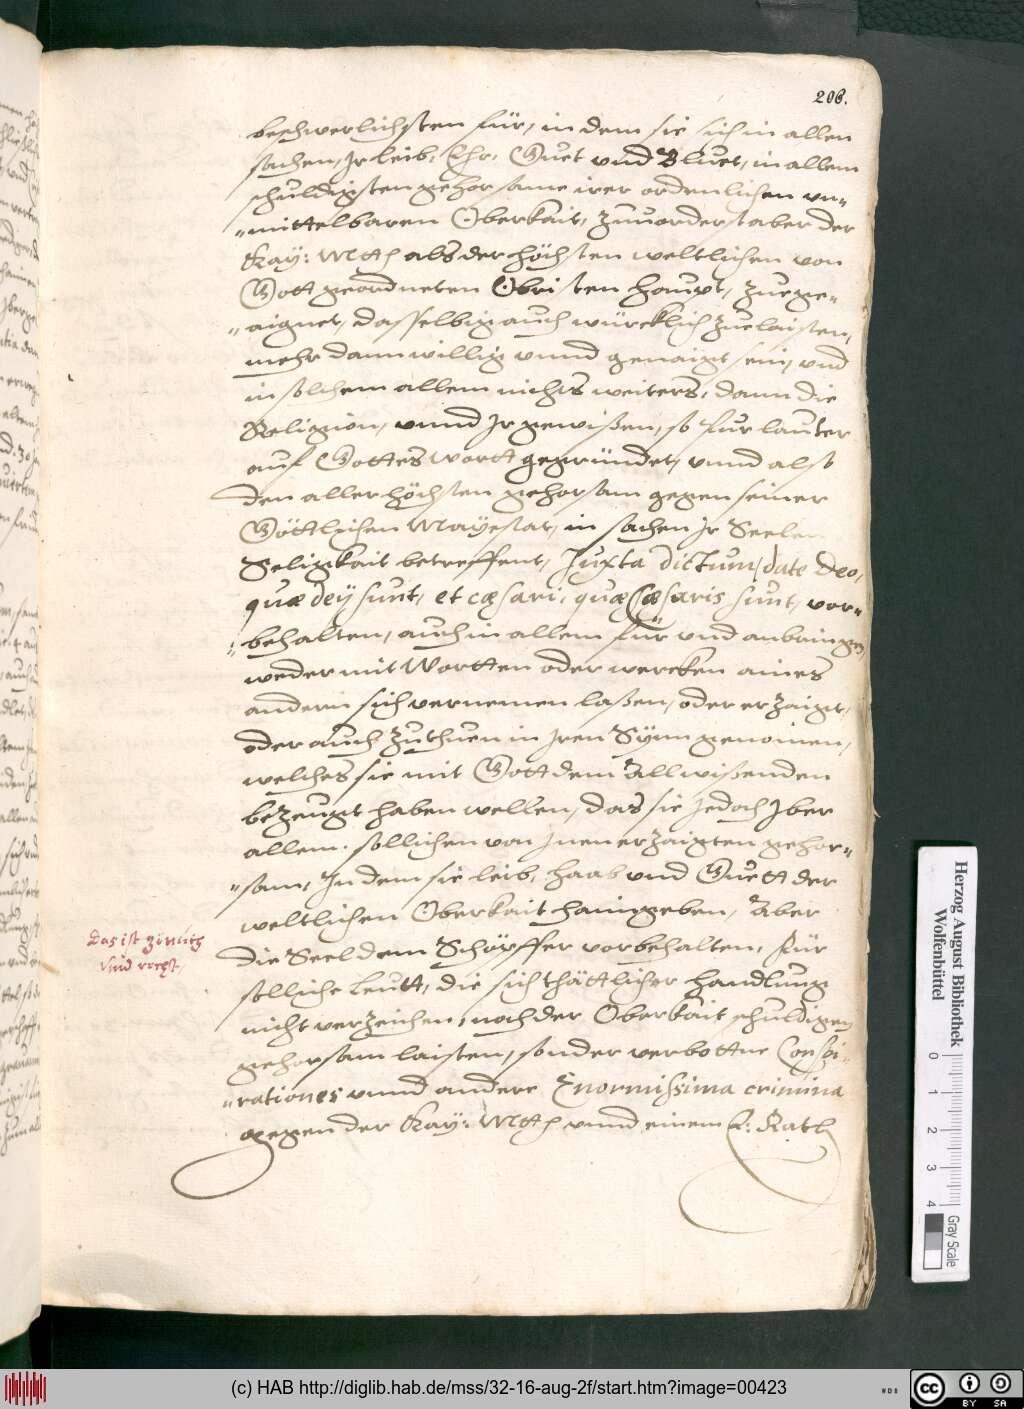 206.
beschwerlichsten für, in dem sie sich in allen
sachen, Jr Leib, Ehr, Guet vnd Bluet, in allem
schuldigsten gehorsame irer ordenlichen vn„
„mittelbaren Oberkait, zuuorderst aber der
Kay: Mtt als der höchsten weltlichen von
Gott geordneten Obristen haupt, zuege„
„aignet, dasselbig auch würcklich zuelaisten,
mehr dann willig vnnd genaigt sein, vnd
in solchem allem nichts weiters, dann die
Religion, vnnd Jr gewißen, so fur lauter
auf Gottes wortt gegründet, vnnd also
den aller höchsten gehorsam gegen seiner
Göttlichen Mayestat, in sachen Jr Seelen
Seligkait betreffent, Juxta dictum, date Deo,
quæ deÿ sunt, et cæsari, quæ Cæsaris sunt, vor„
„behalten, auch in allem für vnd anbringen,
weder mit Wortten oder wercken aines
andern sich vernemen laßen, oder erzaigt,
oder auch zuthuen in Jren Sÿnn genomen,
welches sie mit Gott dem Allwißenden
bezeugt haben wellen, das sie Jedoch Jber
allem sollichen von Jnen erzaigten gehor„
„sam, Jn dem sie leib, haab vnd Guett der
weltlichen Oberkait haimgeben, Aber
die Seel dem Schöpffer vorbehalten, Für
solliche Leutt, die sich thättlicher handlung
nicht verzeichen, noch der Oberkait schuldigen
gehorsam laisten, sonder verbottne Conspi„
„rationes vnnd andere Enormissima crimina
gegen der Kay: Mtt vnnd einem E: Rath
Das ist zimlich
vnd recht,
Herzog August Bibliothek
Wolfenbüttel
0 1 2 3 4
Gray Scale
(c) HAB http://diglib.hab.de/mss/32-16-aug-2f/start.htm?image=00423
WDB
CC BY SA